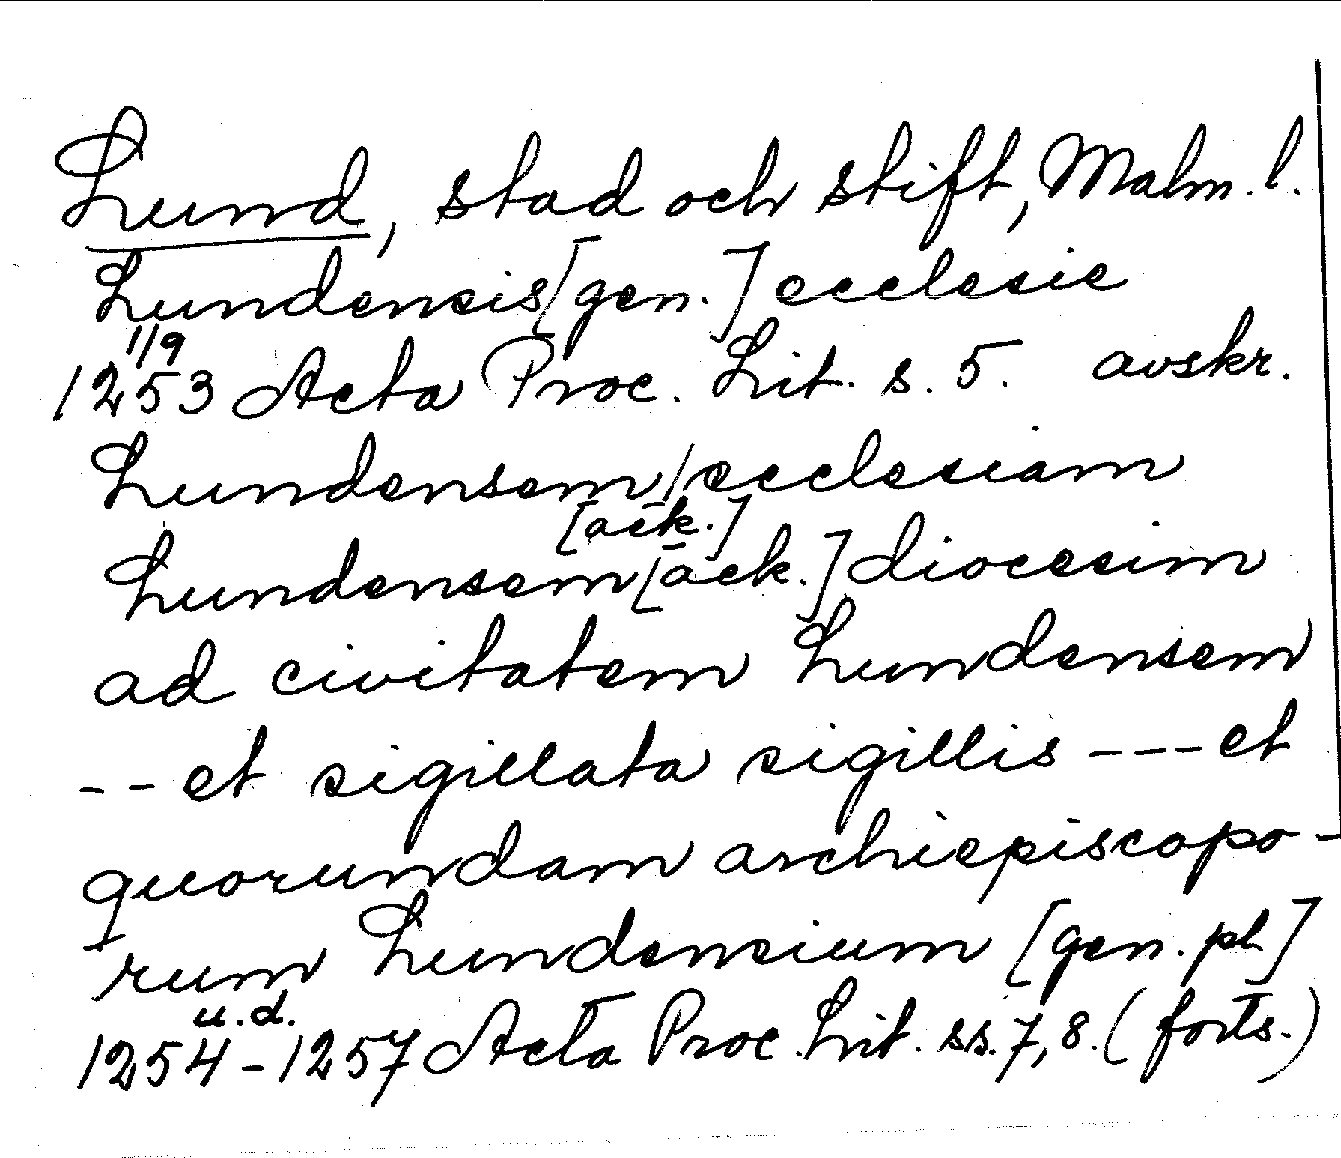 Lund, stad och stift, Malm. l.
Lundensis [gen.] ecclesie
1/9
1253 Acta Proc. Lit. s. 5. avskr.
Lundensem / ecclesiam
[ack.]
Lundensem [ack.] diocesim
ad civitatem Lundensem
-- et sigillata sigillis --- et
quorundam archiepiscopo-
rum Lundensium [gen. pl]
u.d.
1254-1257 Acta Proc. Lit. ss. 7, 8. (forts.)